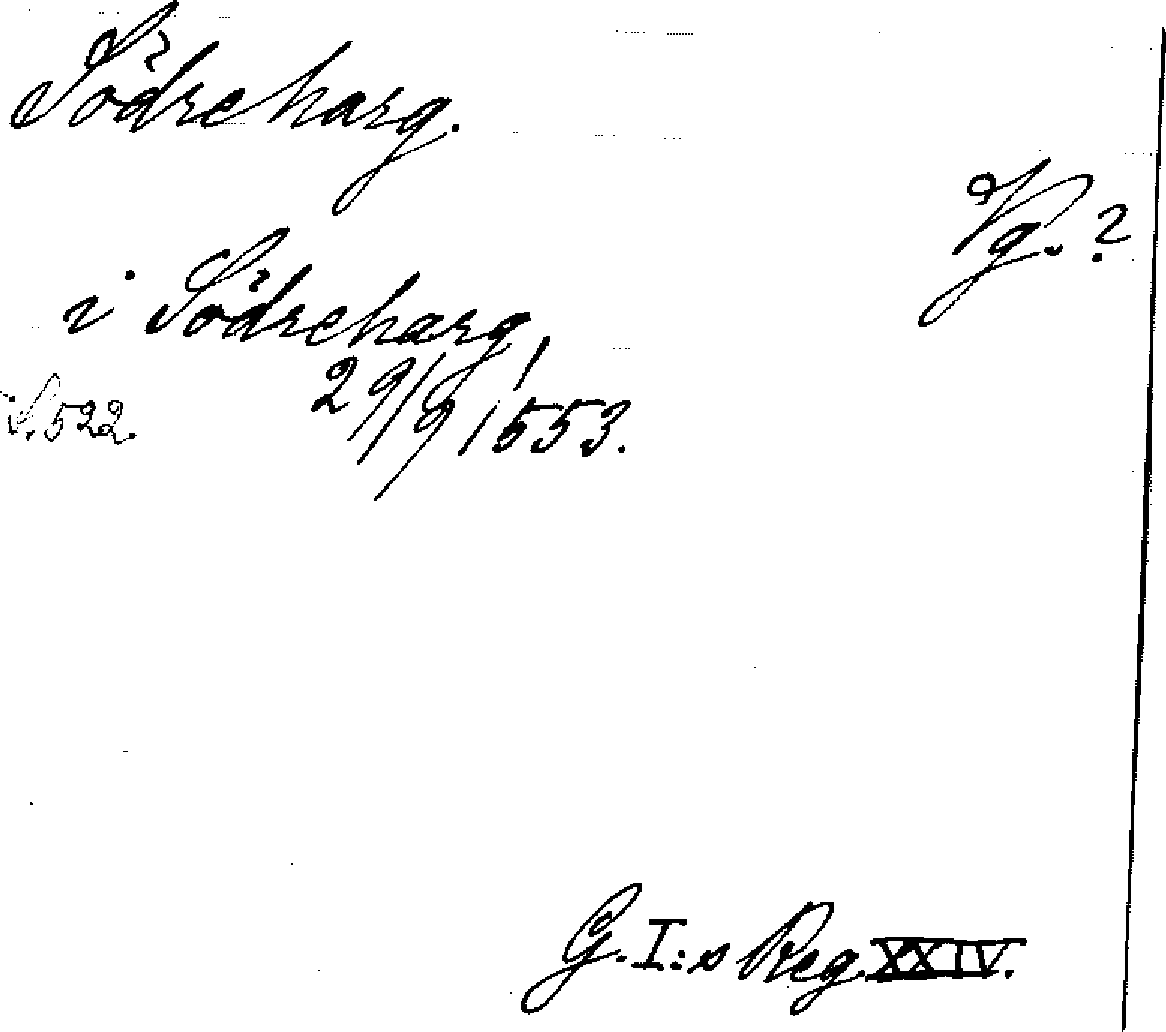 Södreharg.
Vg.?
i Södreharg,
29/9 1553.
S. 522.
G. I:s Reg. XXIV.